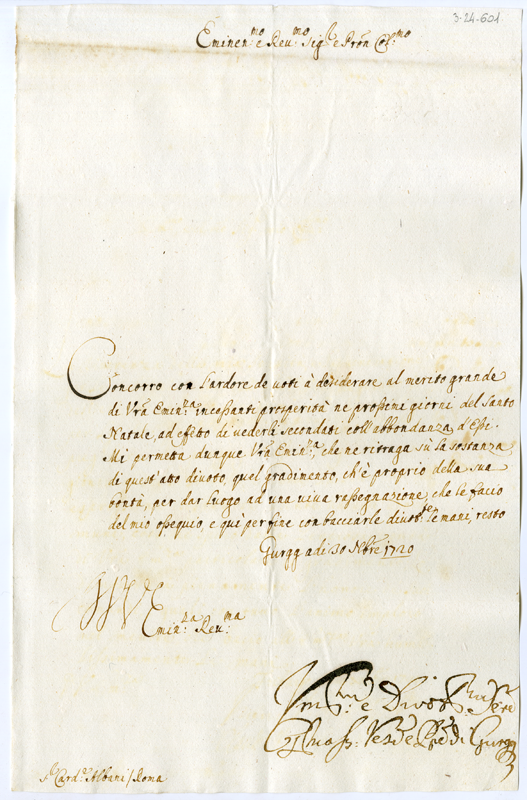 3-24-601
Eminen:mo e Reu:mo Sig:e e Prõn Col:mo
Concorro con l'ardore de uoti à desiderare al merito grande
di Vrã Emin:za incessanti prosperità ne prossimi giorni del Santo
Natale, ad effetto de uederli secondati coll'abbondanza d'essi.
Mi permetta dunque Vrã Emin:za, che ne ritraga sù la sostanza
di quest'atto diuoto, quel gradimento, ch'è proprio della sua
bontà, per dar luogo ad una uiua rassegnazione, che le facio
del mio ossequio, e quì per fine con bacciarle diuot:te le mani, resto
Gurgg adi 30 Nbre 1720
Emin:za Reu:ma
Vm:mo e Diuot:mo Seru
Vesc:o e Ppe di Gurgg
Card:e Albani / Roma